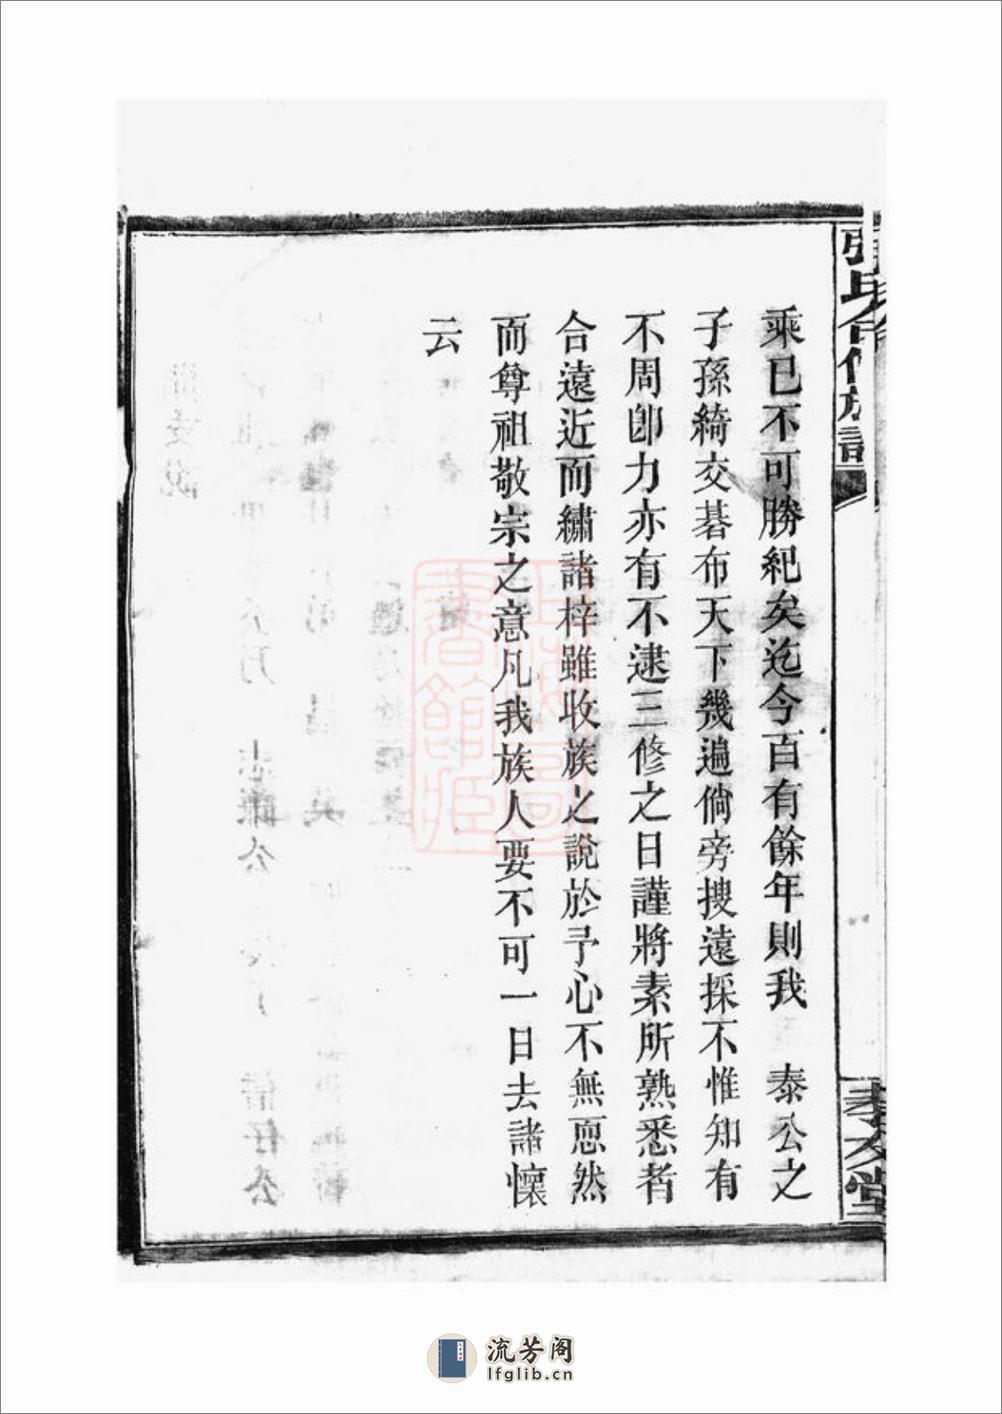 張氏合修族譜
孝友堂
乘已不可勝紀矣迄今百有餘年則我　泰公之
子孫綺交碁布天下幾遍倘旁搜遠採不惟知有
不周卽力亦有不逮三修之日謹將素所熟悉者
合遠近而繡諸梓雖收族之說於予心不無恧然
而尊祖敬宗之意凡我族人要不可一日去諸懷
云
流芳阁
lfglib.cn